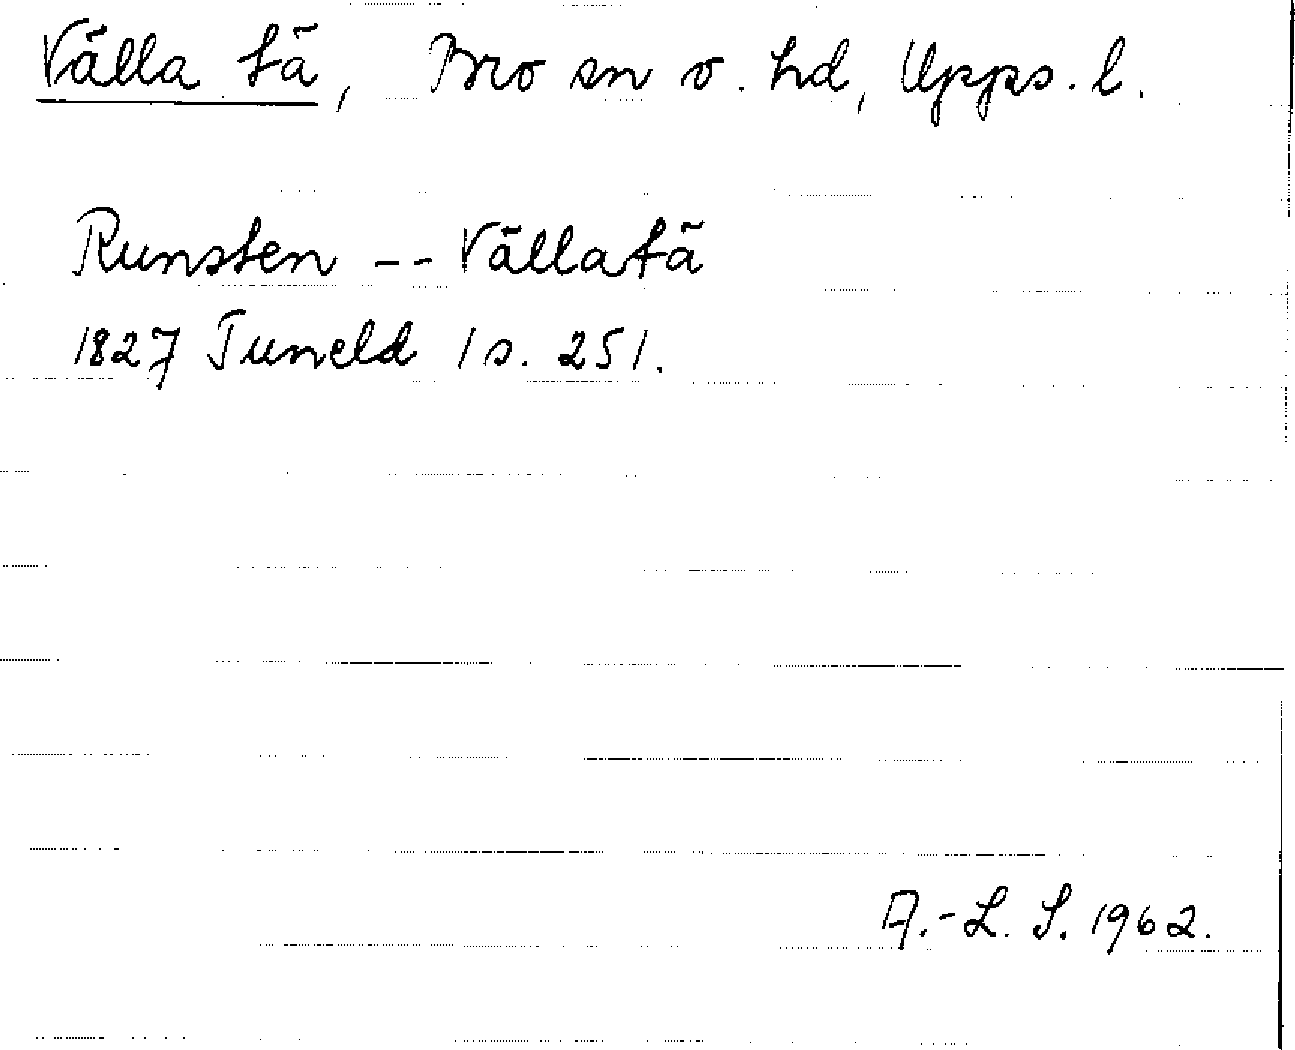 Välla tä, Bro sn o. hd, Upps. l.
Runsten -- Vällatä
1827 Tuneld 1 s. 251.
A.-L. S. 1962.